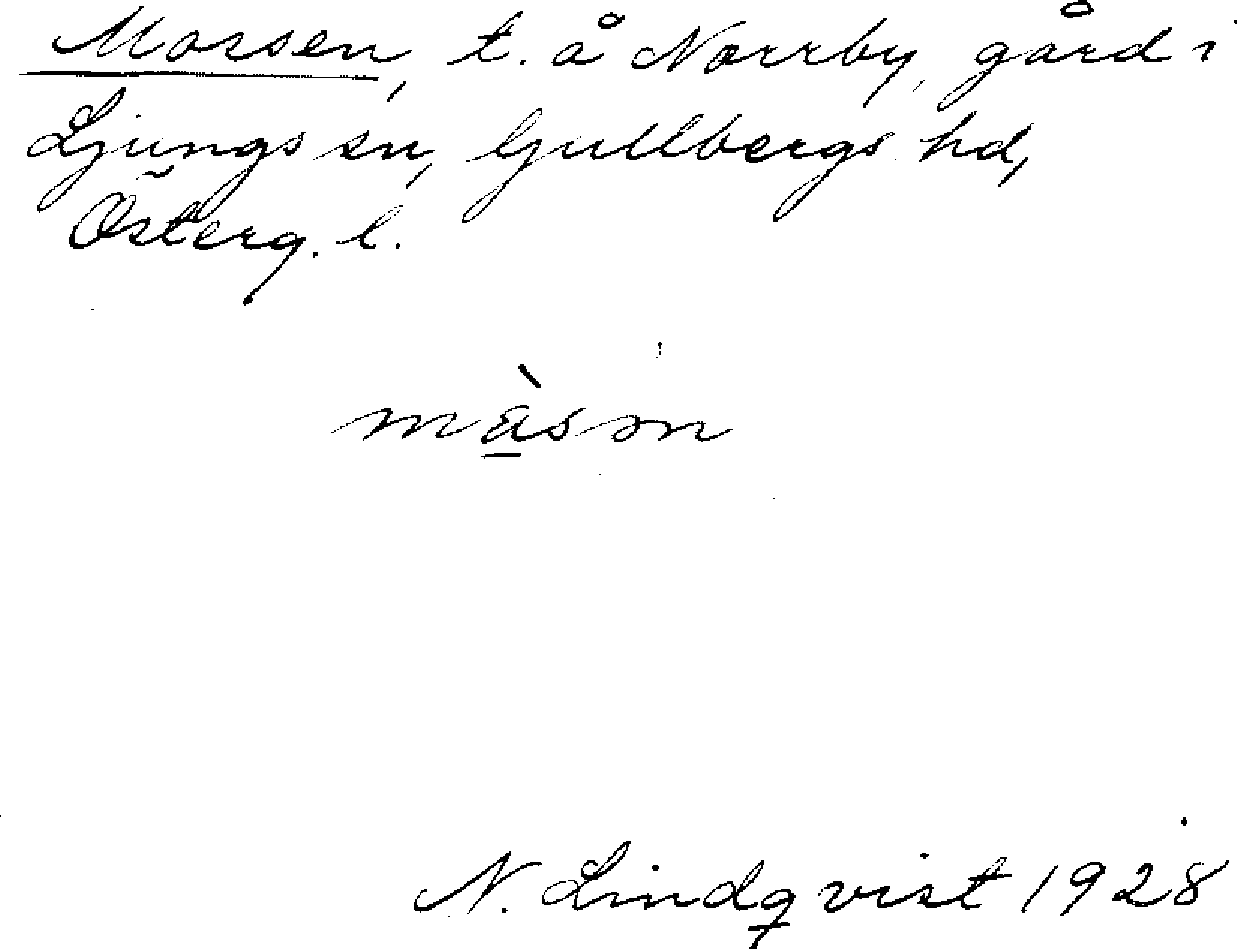 Mossen, t. å Norrby, gård i
Ljungs sn, Gullbergs hd,
Österg. l.
må̀sən
N. Lindqvist 1928